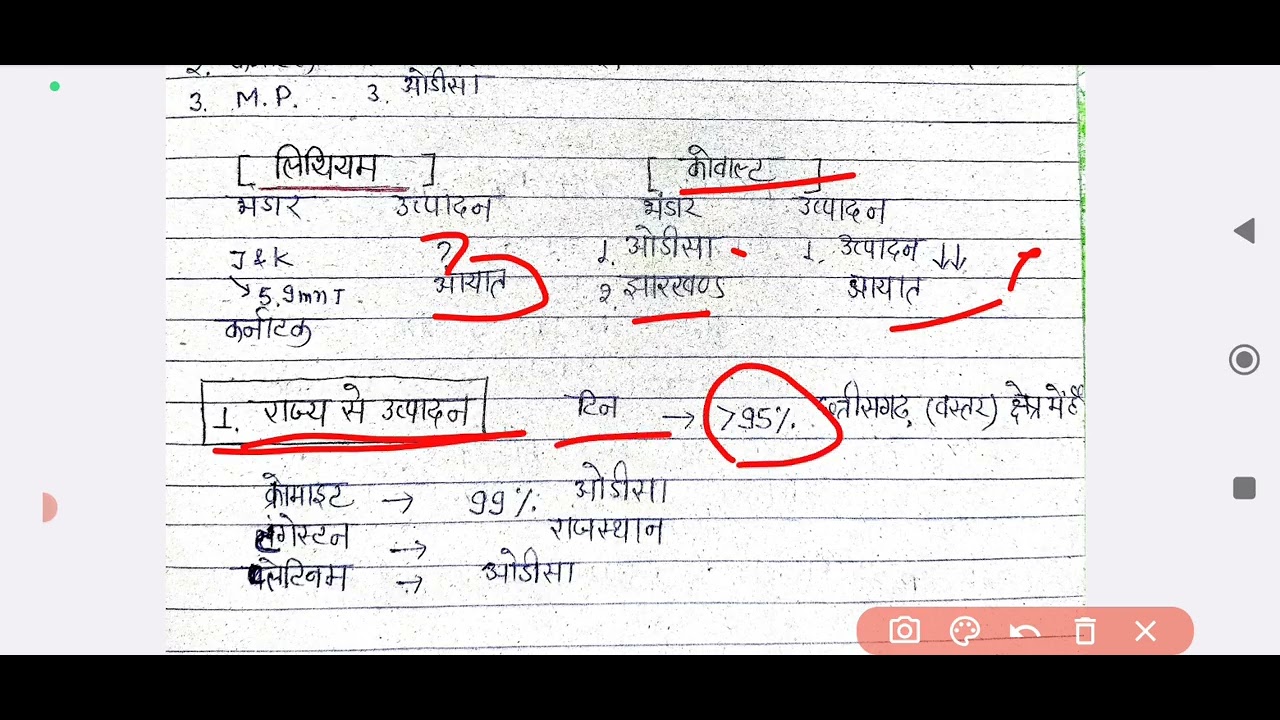 3. M.P. 3. ओडीसा
[ लिथियम ] [ कोवाल्ट ]
भंडार उत्पादन भंडार उत्पादन
J & K ? 1. ओडीसा 1. उत्पादन ↓↓↓
↘ 5.9mnT आयात 2. झारखण्ड आयात
कर्नाटक
1. राज्य से उत्पादन टिन → >95% छत्तीसगढ़ (वस्तर) क्षेत्र में है
क्रोमाइट → 99% ओडीसा
टंगेस्टन → राजस्थान
प्लेटिनम → ओडीसा